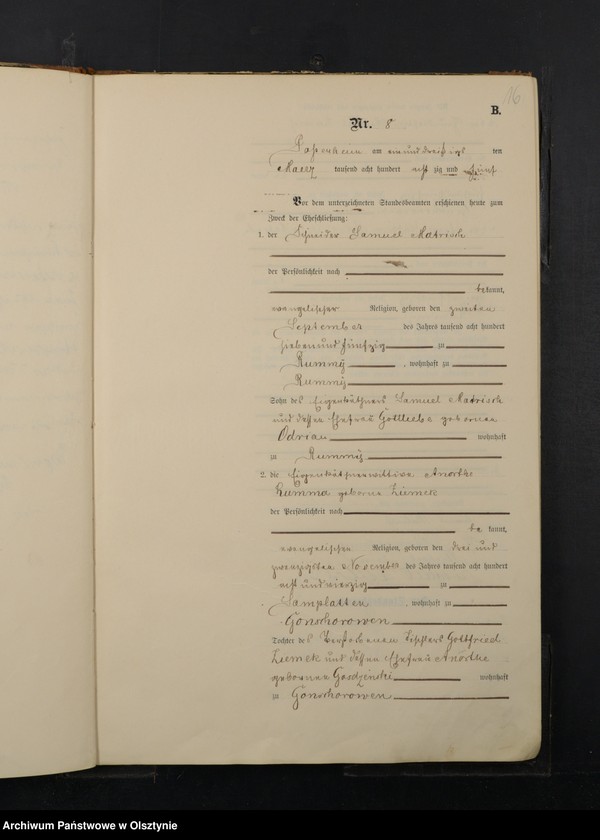 16
B.
Nr. 8
am ein und dreißigsten den
Maerz tausend acht hundert acht zig und fünf
Vor dem unterzeichneten Standesbeamten erschienen heute zum
Zweck der Eheschließung:
1. der Schneider Samuel Matrisch
der Persönlichkeit nach
be kannt,
evangelischer Religion, geboren den zweiten
September des Jahres tausend acht hundert
sieben und fünfzig zu
Rummy, wohnhaft zu
Rummy
Sohn des Eigenkäthners Samuel Matrisch
und dessen Ehefrau Gottliebe geborenen
Odrian wohnhaft
zu Rummy
2. die Eigenkäthnerwittwe Anorthe
Rumma geborne Ziemek
der Persönlichkeit nach
be kannt,
evangelischer Religion, geboren den drei und
zwanzigsten November des Jahres tausend acht hundert
acht und vierzig zu
Samplatten, wohnhaft zu
Gonschorowen
Tochter des verstorbenen Gottfried
Ziemek und dessen Ehefrau Anorthe
geborenen Gosdzinski wohnhaft
zu Gonschorowen
Archiwum Państwowe w Olsztynie